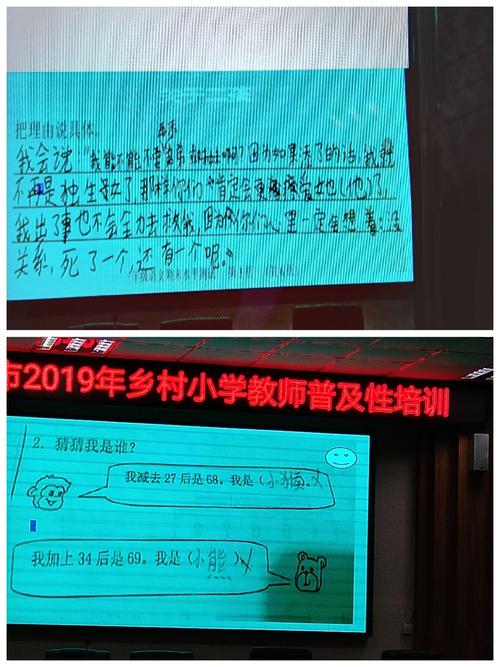 把理由说具体。
再添
我会说:"我能不能不要弟弟或妹妹啊?因为如果添了的话,我就
不再是独生子女了,那样你们肯定会更疼爱她(他)了,
我出了事也不会全力去救我,因为你们心里一定会想着:没
关系,死了一个,还有一个呢。
市2019年乡村小学教师普及性培训
2. 猜猜我是谁?
我减去27后是68。我是(小猴)
我加上34后是69。我是(小熊)